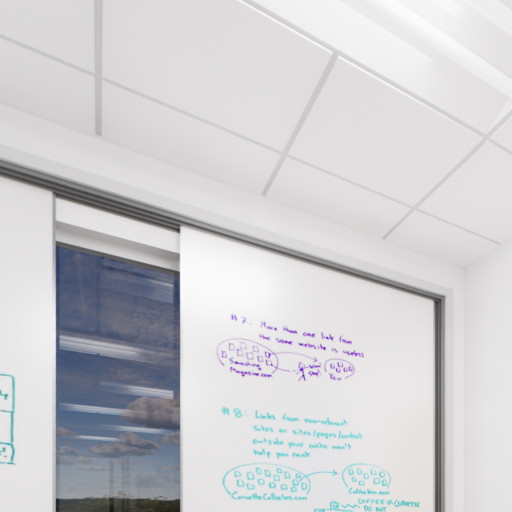 #7: More than one link from
the same website is useless
Smashing
Magazine.com
You
#8: Links from non-relevant
sites or sites/pages/content
outside your niche won't
help you rank
CorvetteCollectors.com
COFFEE ≠ CORVETTE
DO NOT